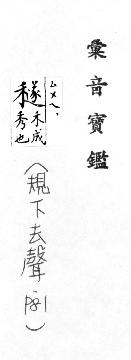 彙音寶鑑
ㄙㄨㄟˋ
穟 禾成秀也
(規下去聲 P.81)